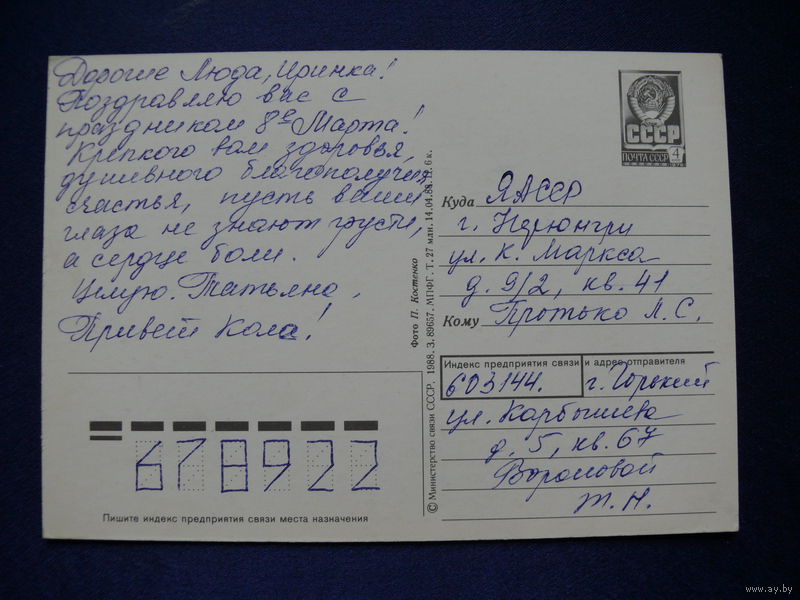 Дорогие Люда, Иринка!
Поздравляю вас с
праздником 8е Марта!
Крепкого вам здоровья,
душевного благополучия,
счастья, пусть ваши
глаза не знают грусти,
а сердце боли.
Целую. Татьяна,
Привет Кола!
678922
Пишите индекс предприятия связи места назначения
Фото П. Костенко
© Министерство связи СССР, 1988. З. 89657. МПФГ. Т. 27 млн. 14.04.88. Ц. 6 к.
СССР
ПОЧТА СССР 4
Куда ЯАССР
г. Нерюнгри
ул. К. Маркса
д. 9/2, кв. 41
Кому Протько Л. С.
Индекс предприятия связи и адрес отправителя
603144. г. Горький
ул. Карбышева
д. 5, кв. 67
Т. Н.
www.ay.by